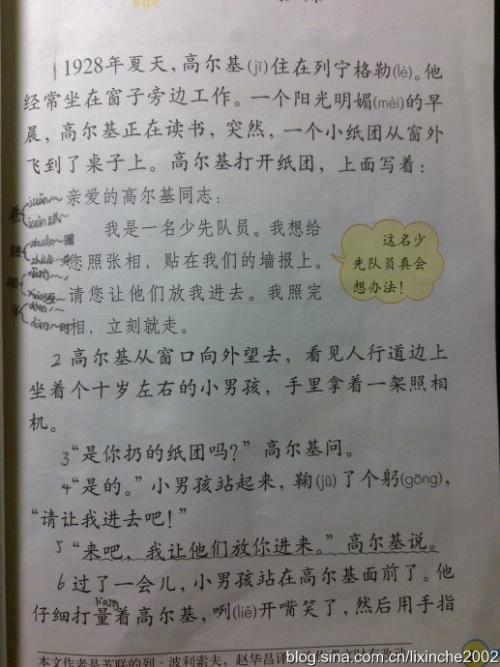 1928年夏天，高尔基(jī)住在列宁格勒(lè)。他
经常坐在窗子旁边工作。一个阳光明媚(mèi)的早
晨，高尔基正在读书，突然，一个小纸团从窗外
飞到了桌子上。高尔基打开纸团，上面写着：
亲爱的高尔基同志：
我是一名少先队员。我想给
您照张相，贴在我们的墙报上。
请您让他们放我进去。我照完
相，立刻就走。
这名少
先队员真会
想办法！
2 高尔基从窗口向外望去，看见人行道边上
坐着个十岁左右的小男孩，手里拿着一架照相
机。
3 “是你扔的纸团吗？”高尔基问。
4 “是的。”小男孩站起来，鞠(jū)了个躬(gōng)，
“请让我进去吧！”
5 “来吧，我让他们放你进来。”高尔基说。
6 过了一会儿，小男孩站在高尔基面前了。他
liàng
仔细打量着高尔基，咧(liě)开嘴笑了，然后用手指
本文作者是苏联的列·波利索夫，赵华昌译
blog.sina.com.cn/lixinche2002